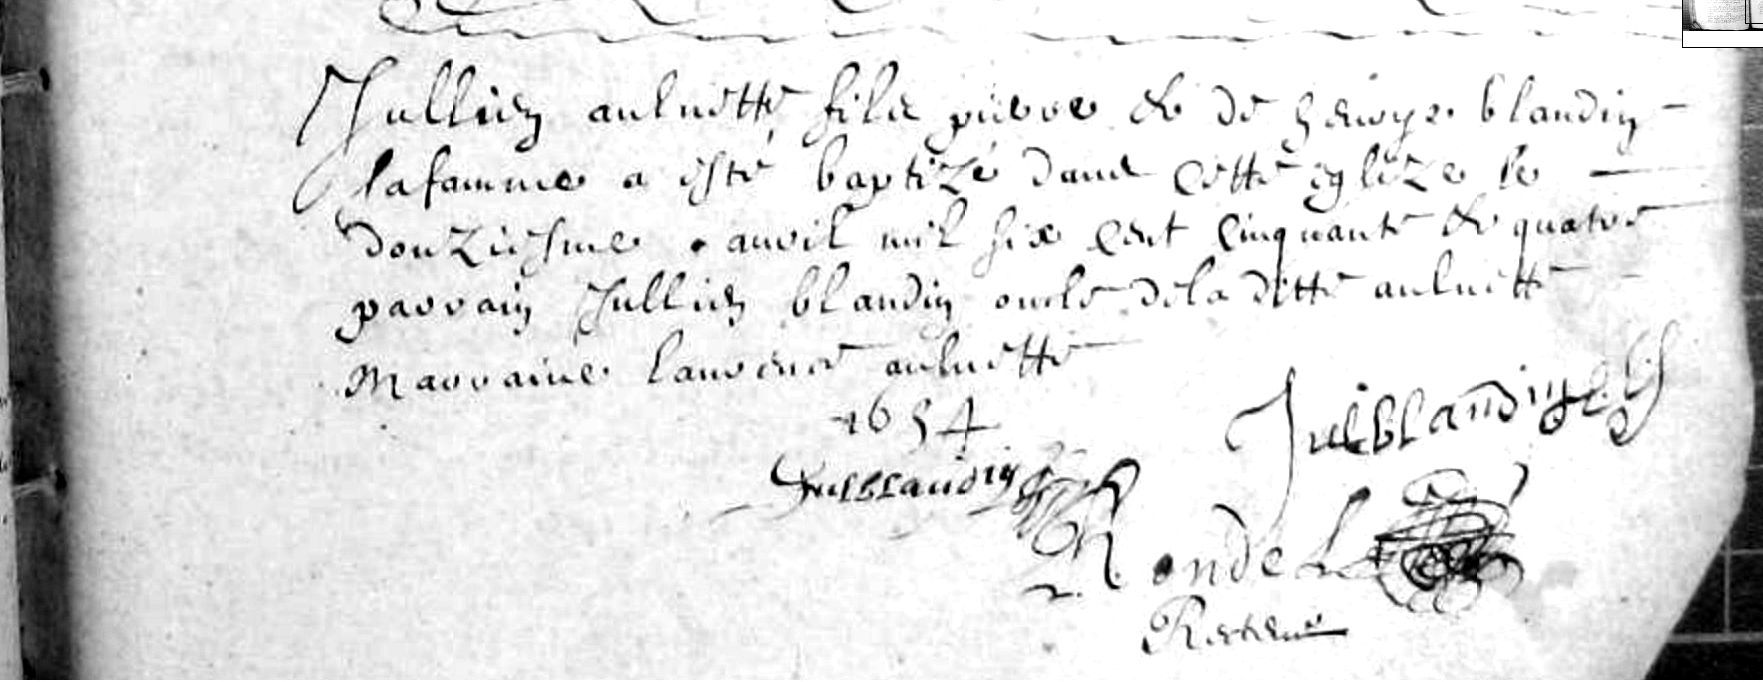 Jullien aulnette fils pierre & de henrye blandin
sa famme a esté baptizé dans cette eglize le
douziesme avril mil six cent cinquante & quatre
parrain Jullien blandin oncle de la ditte aulnette
Marraine laurence aulnette
1654
Julblandin
Julblandin
Rondel
Recteur